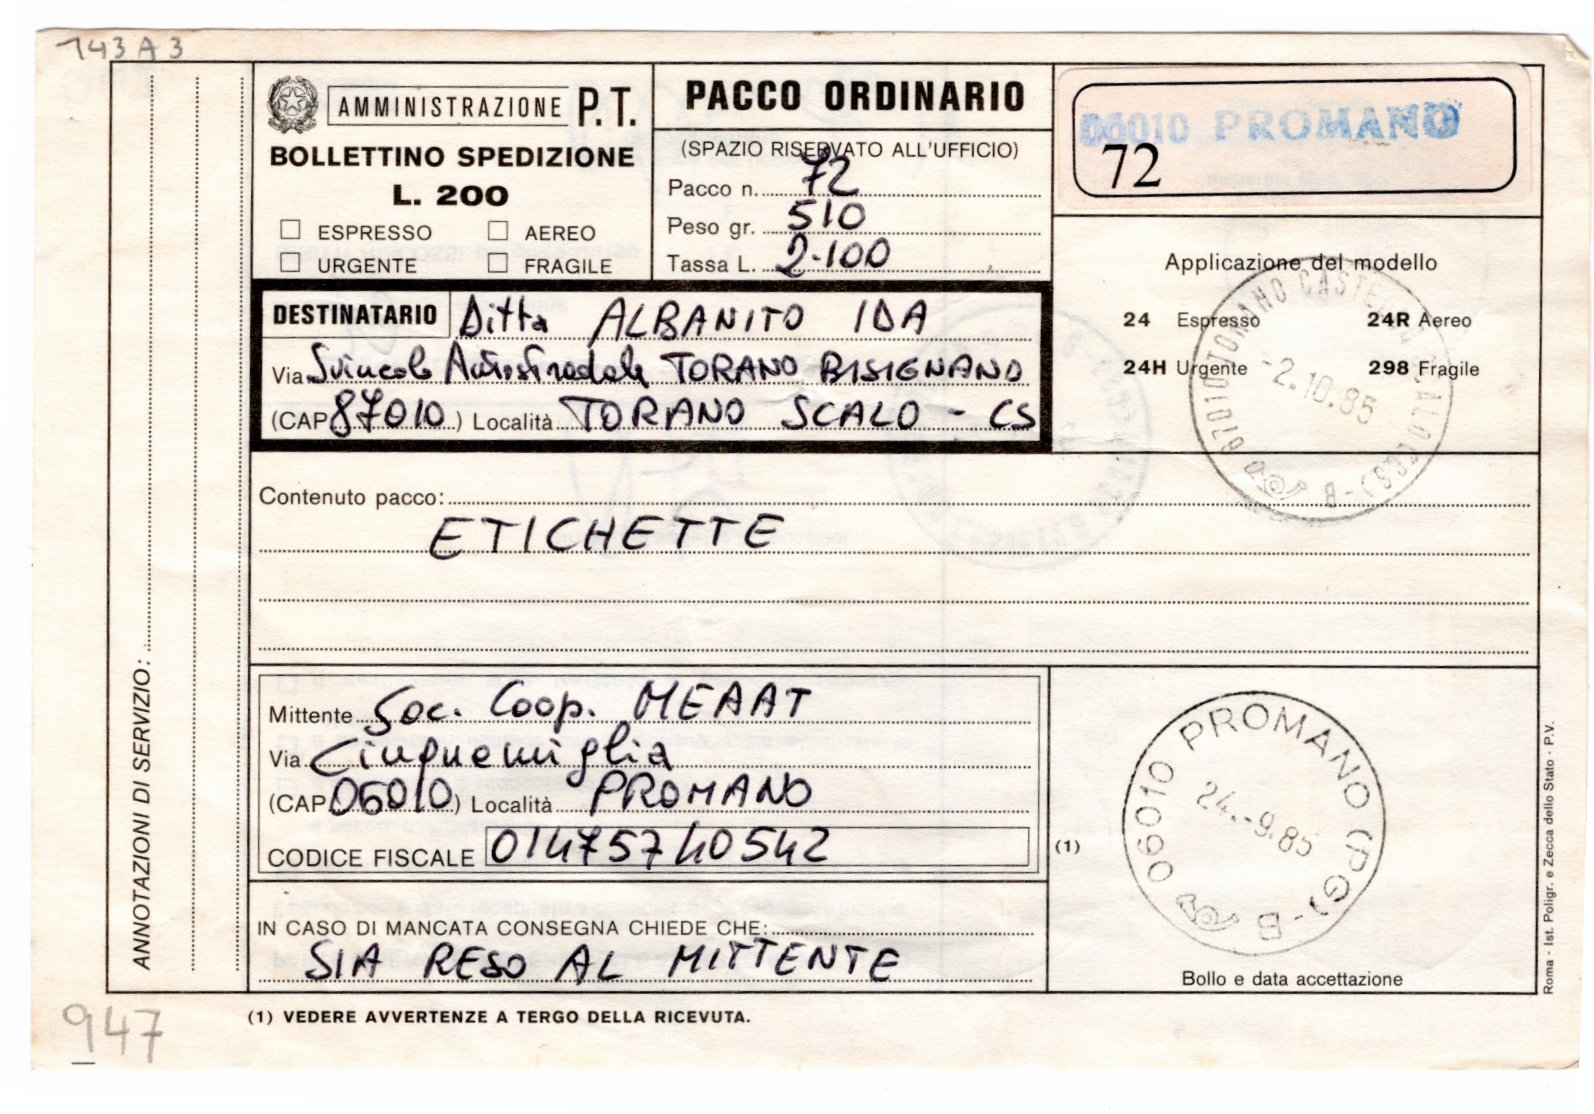 143 A 3
AMMINISTRAZIONE P.T.
BOLLETTINO SPEDIZIONE
L. 200
ESPRESSO AEREO
URGENTE FRAGILE
PACCO ORDINARIO
(SPAZIO RISERVATO ALL'UFFICIO)
Pacco n. 72
Peso gr. 510
Tassa L. 2.100
06010 PROMANO
72
Applicazione del modello
24 Espresso 24R Aereo
24H Urgente 298 Fragile
87010 TORANO CASTELLO SCALO (CS) - B
-2.10.85
DESTINATARIO Ditta ALBANITO IDA
Via Svincolo Autostradale TORANO BISIGNANO
(CAP 87010) Località TORANO SCALO - CS
Contenuto pacco:
ETICHETTE
ANNOTAZIONI DI SERVIZIO:
Mittente Soc. Coop. MEAAT
Via Cinquemiglia
(CAP 06010) Località PROMANO
CODICE FISCALE 01475740542
(1)
06010 PROMANO (PG) - B
24.-9.85
Bollo e data accettazione
IN CASO DI MANCATA CONSEGNA CHIEDE CHE:
SIA RESO AL MITTENTE
Roma - Ist. Poligr. e Zecca dello Stato - P.V.
(1) VEDERE AVVERTENZE A TERGO DELLA RICEVUTA.
947